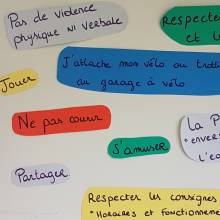 Pas de violence
physique ni verbale
Respecter
et l
J'attache mon vélo ou trott
au garage à vélo
Jouer
Ne pas courir
La P
"envers
l'e
S'amuser
Partager
Respecter les consignes
* Horaires et fonctionnem